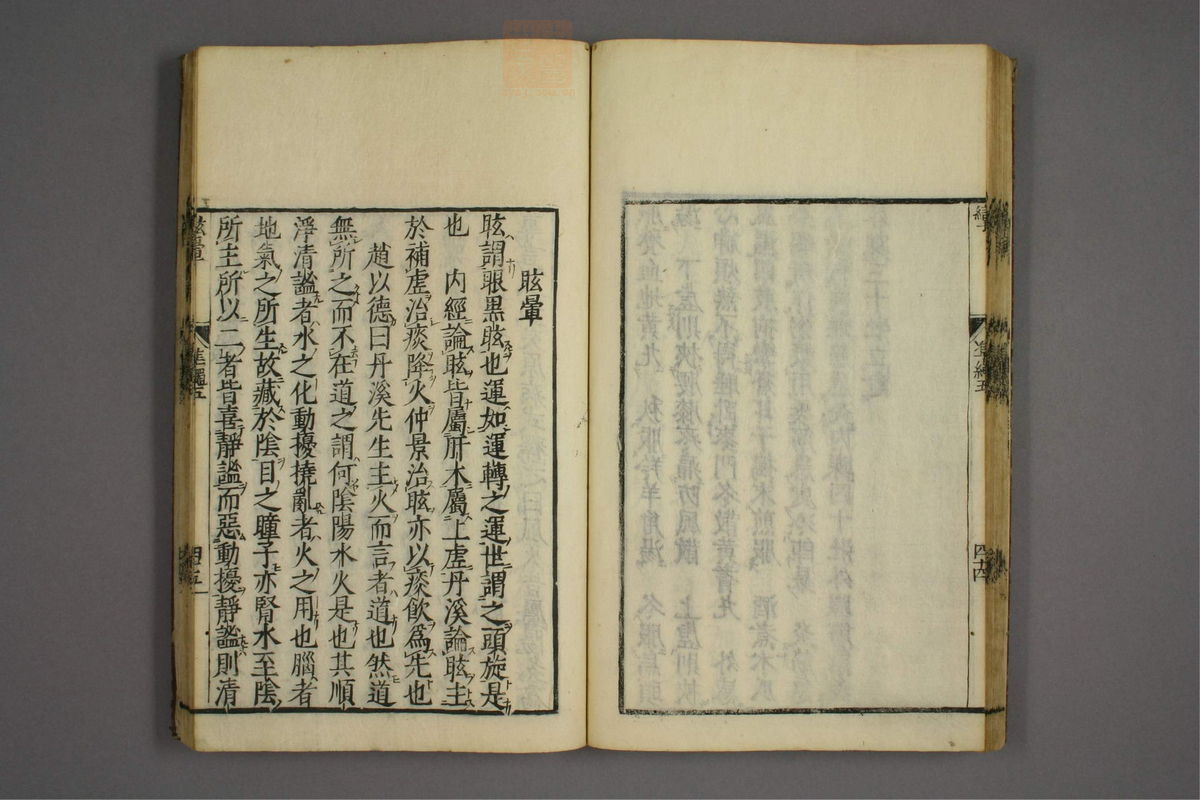 眩暈
眩謂眼黒眩也運如運轉之運世謂之頭旋是
也　内經論眩皆屬肝木屬上虛丹溪論眩主
於補虛治痰降火仲景治眩亦以痰飲爲先也
趙以德曰丹溪先生主火而言者道也然道
無所之而不在道之謂何陰陽水火是也其順
淨清謐者水之化動擾撓亂者火之用也腦者
地氣之所生故藏於陰目之瞳子亦腎水至陰
所主所以二者皆喜靜謐而惡動擾靜謐則清
眩暈
準繩五
四十五
準繩五
四十四